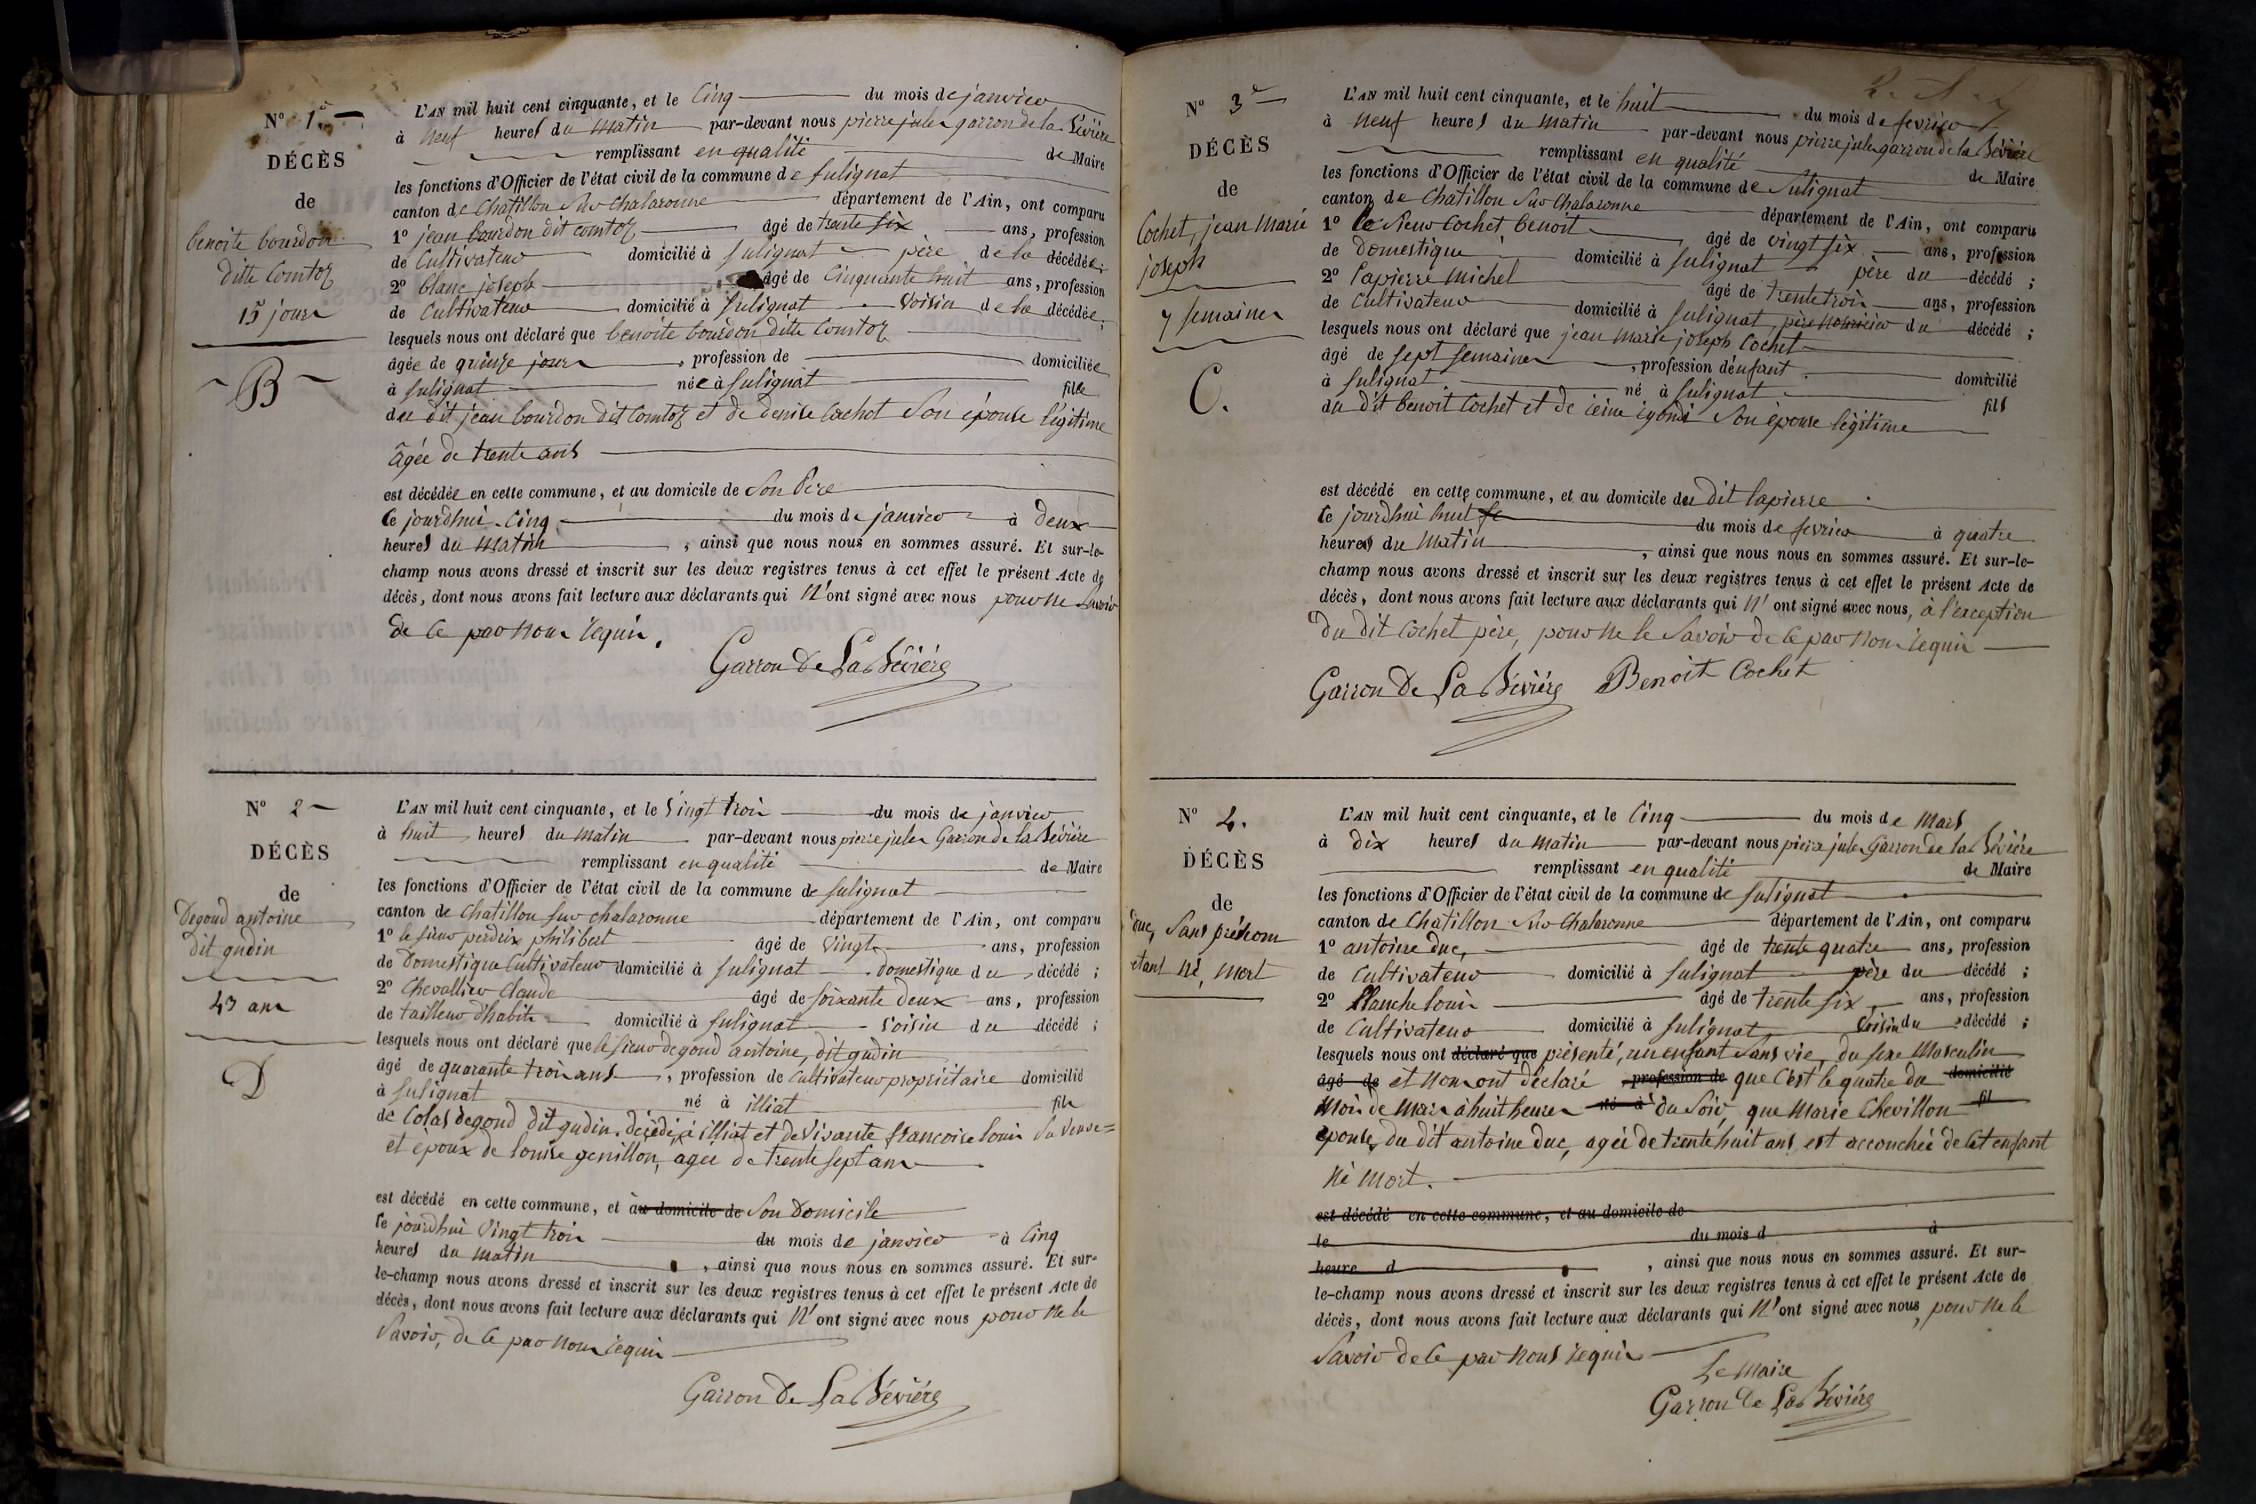 N° 1.
DÉCÈS
de
benoite bourdon
ditte Comtoz
15 jours
B
L'AN mil huit cent cinquante, et le Cinq du mois de janvier
à neuf heures du matin par-devant nous pierre jules garron de la Bévière
remplissant en qualité de Maire
les fonctions d'Officier de l'état civil de la commune de Sulignat
canton de Chatillon sur Chalaronne département de l'Ain, ont comparu
1° jean bourdon dit comtoz âgé de trente six ans, profession
de Cultivateur domicilié à Sulignat père de la décédée;
2° blanc joseph âgé de Cinquante huit ans, profession
de Cultivateur domicilié à Sulignat Voisin de la décédée;
lesquels nous ont déclaré que benoite bourdon ditte Comtoz
âgée de quinze jours, profession de domiciliée
à Sulignat née à Sulignat fille
du dit jean bourdon dit Comtoz et de denise Cochot Son épouse légitime
âgée de trente ans
est décédée en cette commune, et au domicile de Son Père
le jourdhui Cinq du mois de janvier à Deux
heures du matin, ainsi que nous nous en sommes assuré. Et sur-le-
champ nous avons dressé et inscrit sur les deux registres tenus à cet effet le présent Acte de
décès, dont nous avons fait lecture aux déclarants qui N'ont signé avec nous pour ne Savoir
de Ce par nous requis.
Garron De La Bévière
N° 2
DÉCÈS
de
Degoud antoine
dit gudin
43 ans
D
L'AN mil huit cent cinquante, et le Vingt trois du mois de janvier
à huit heures du matin par-devant nous pierre jules Garron de la Bévière
remplissant en qualité de Maire
les fonctions d'Officier de l'état civil de la commune de Sulignat
canton de Chatillon sur chalaronne département de l'Ain, ont comparu
1° le sieur perdrix philibert âgé de Vingt ans, profession
de Domestique Cultivateur domicilié à Sulignat domestique du décédé;
2° Chevallier Claude âgé de soixante deux ans, profession
de tailleur d'habits domicilié à Sulignat Voisin du décédé;
lesquels nous ont déclaré que le sieur degoud antoine, dit gudin
âgé de quarante trois ans, profession de Cultivateur propriétaire domicilié
à Sulignat né à illiat fils
de Colas degoud dit gudin décédé à illiat et de Vivante françoise louis Sa Veuve=
et époux de louise genillon, agée de trente sept ans
est décédé en cette commune, et à au domicile de Son Domicile
le jourdhui Vingt trois du mois de janvier à Cinq
heures du matin, ainsi que nous nous en sommes assuré. Et sur-
le-champ nous avons dressé et inscrit sur les deux registres tenus à cet effet le présent Acte de
décès, dont nous avons fait lecture aux déclarants qui N'ont signé avec nous pour ne le
Savoir, de Ce par nous requis
Garron De La Bévière
N° 3
DÉCÈS
de
Cochet, jean Marie
joseph
7 Semaines
C.
L'AN mil huit cent cinquante, et le huit du mois de fevrier
à neuf heures du matin par-devant nous pierre jules garron de la Bévière
remplissant en qualité de Maire
les fonctions d'Officier de l'état civil de la commune de Sulignat
canton de Chatillon Sur Chalaronne département de l'Ain, ont comparu
1° le Sieur Cochet benoit âgé de vingt six ans, profession
de Domestique domicilié à Sulignat père du décédé;
2° lapierre michel âgé de trente trois ans, profession
de Cultivateur domicilié à Sulignat, père nourricier du décédé;
lesquels nous ont déclaré que jean marie joseph Cochet
âgé de sept semaines, profession d'enfant domicilié
à Sulignat né à Sulignat fils
du dit benoit Cochet et de Son épouse légitime
est décédé en cette commune, et au domicile du dit lapierre
le jourdhui huit fe du mois de fevrier à quatre
heures du matin, ainsi que nous nous en sommes assuré. Et sur-le-
champ nous avons dressé et inscrit sur les deux registres tenus à cet effet le présent Acte de
décès, dont nous avons fait lecture aux déclarants qui N'ont signé avec nous, à l'exception
Du dit Cochet père, pour ne le Savoir de Ce par nous requis
Garron De La Bévière Benoit Cochet
N° 4.
DÉCÈS
de
duc, Sans prénom
étant né, mort
L'AN mil huit cent cinquante, et le Cinq du mois de Mars
à dix heures du matin par-devant nous pierre jules Garron de la Bévière
remplissant en qualité de Maire
les fonctions d'Officier de l'état civil de la commune de Sulignat
canton de Chatillon Sur Chalaronne département de l'Ain, ont comparu
1° antoine duc, âgé de trente quatre ans, profession
de Cultivateur domicilié à Sulignat père du décédé;
2° Blanche louis âgé de trente six ans, profession
de Cultivateur domicilié à Sulignat, Voisin du décédé;
lesquels nous ont déclaré que présenté, un enfant Sans vie, du sexe Masculin
âgé de et nous ont déclaré profession de que C'est le quatre du domicilié
Mois de Mars à huit heures né à du Soir, que Marie Chevillon fil
épouse, du dit antoine duc, agée de trente huit ans est accouchée de Cet enfant
né mort.
est décédé en cette commune, et au domicile de
le du mois d à
heure d, ainsi que nous nous en sommes assuré. Et sur-
le-champ nous avons dressé et inscrit sur les deux registres tenus à cet effet le présent Acte de
décès, dont nous avons fait lecture aux déclarants qui N'ont signé avec nous, pour ne le
Savoir de Ce par nous requis
Le Maire
Garron De La Bévière